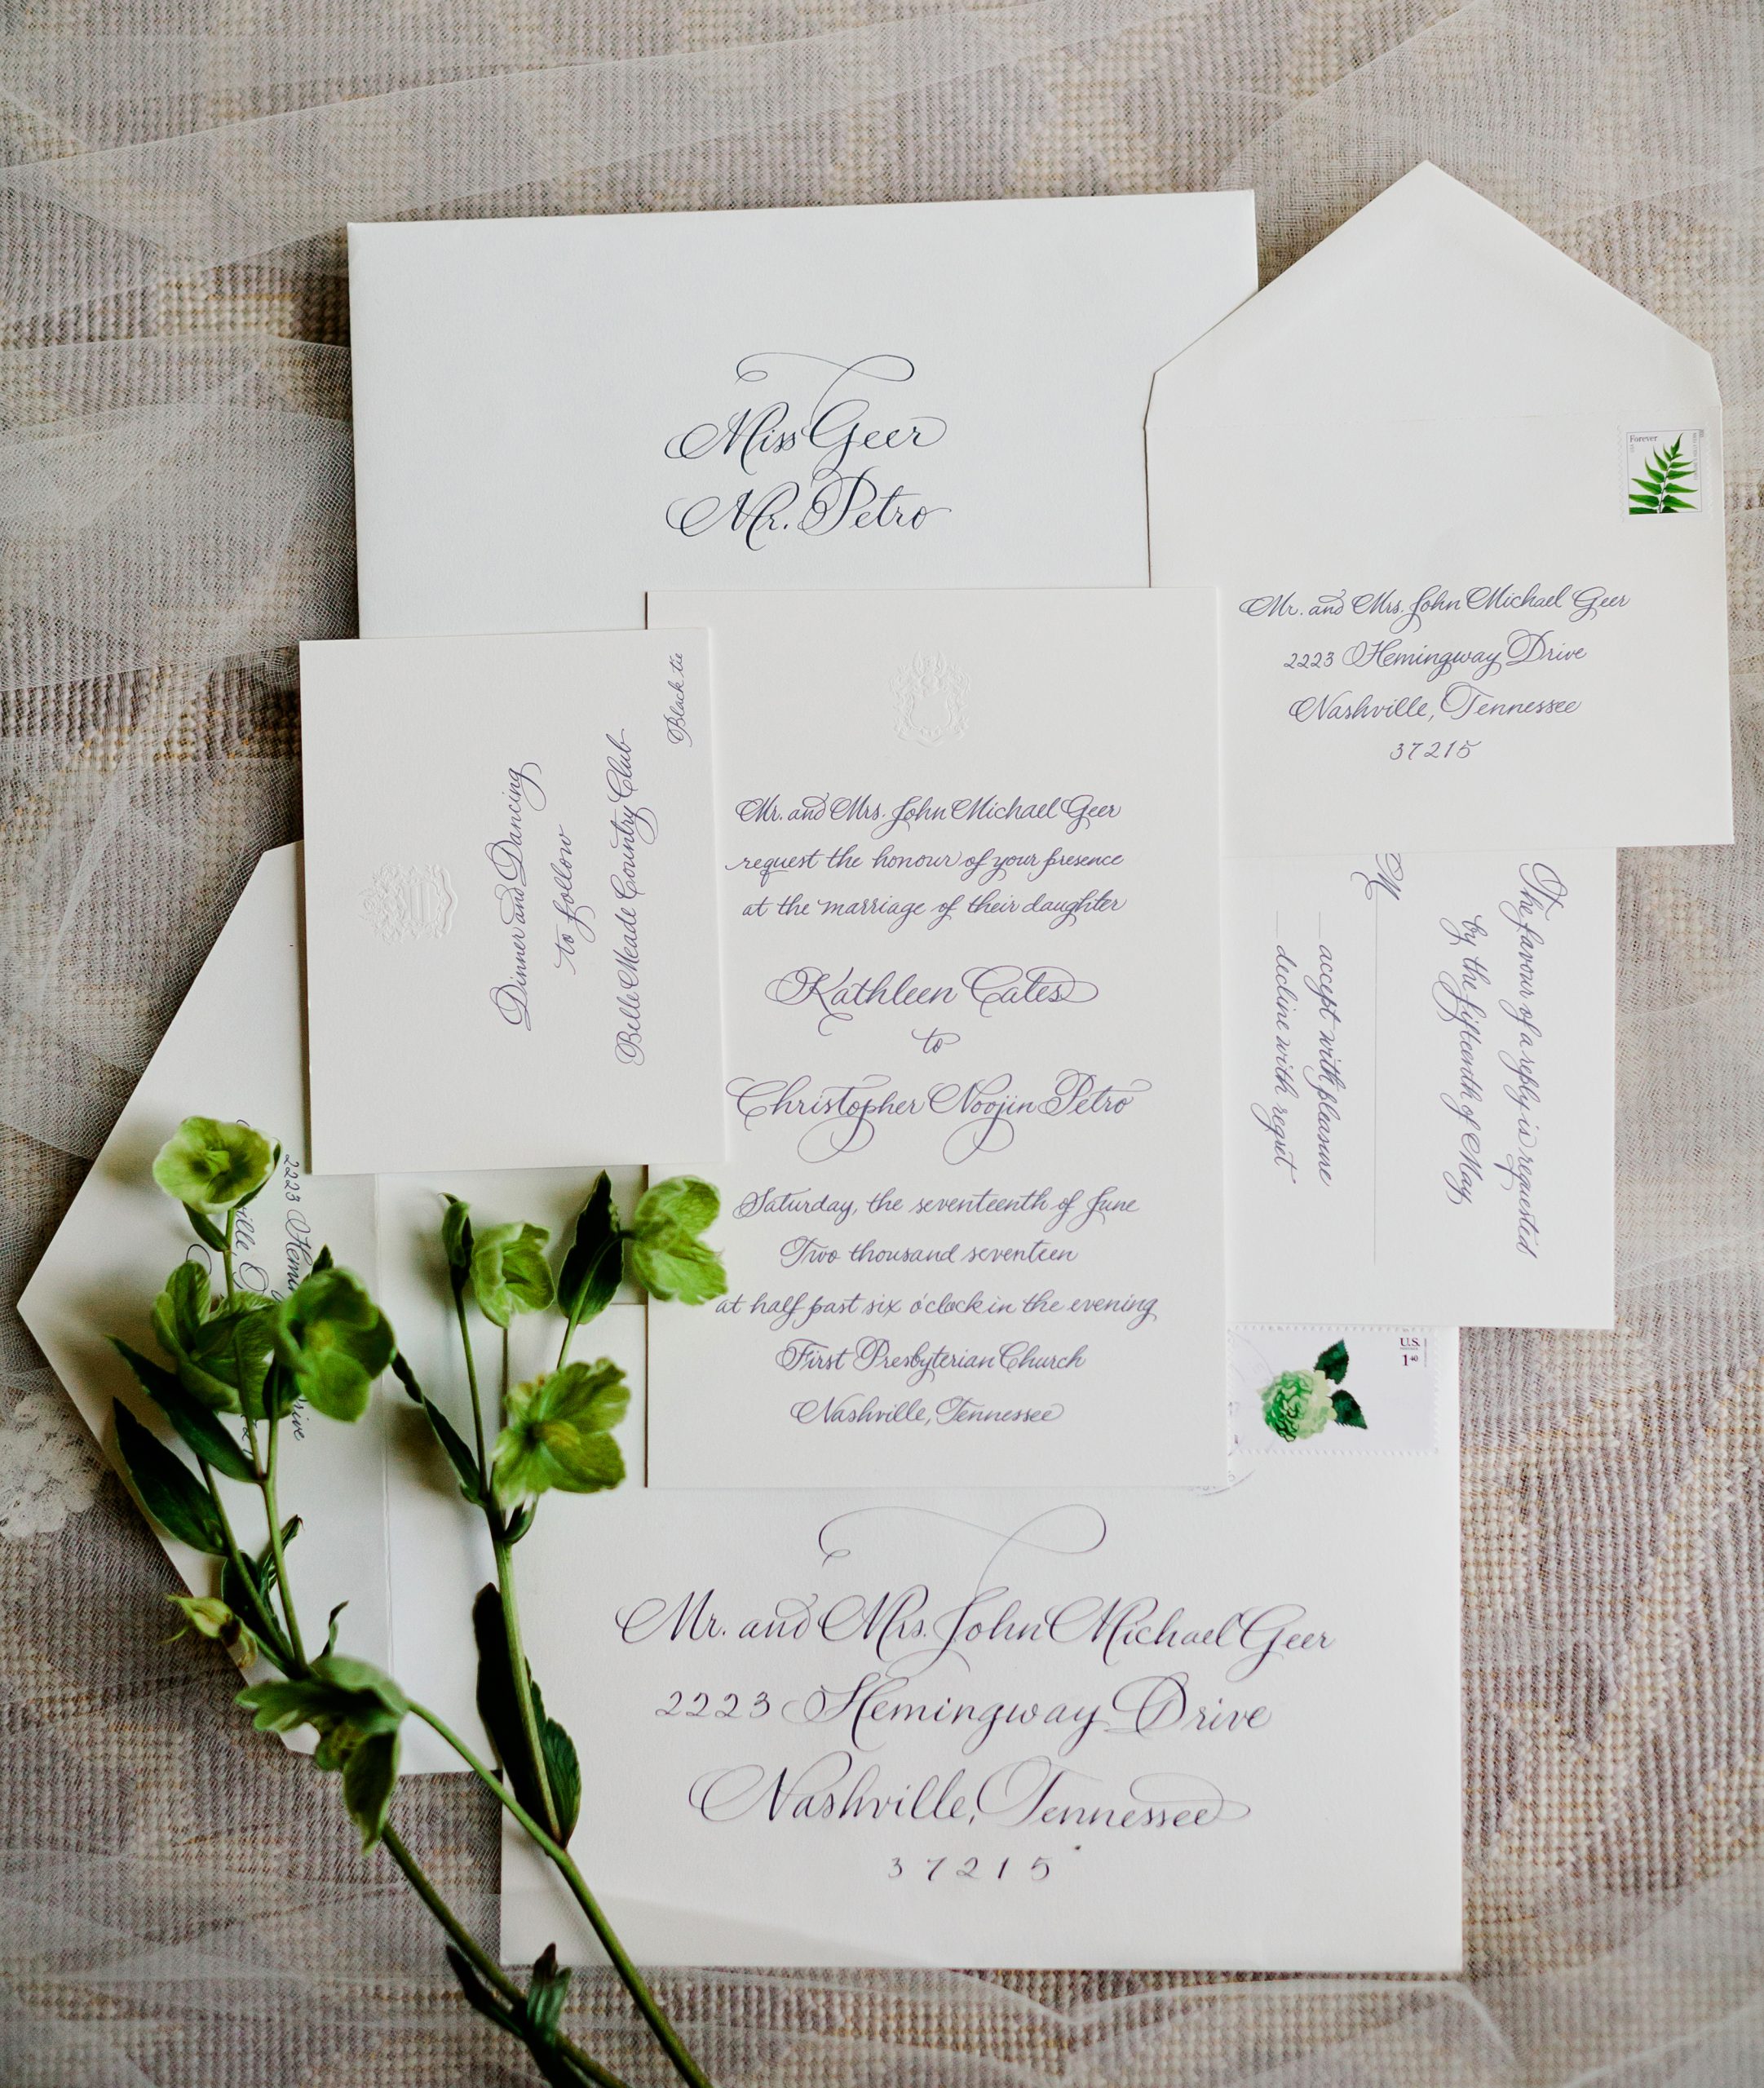 Miss Geer
Mr. Petro
Forever
Mr. and Mrs. John Michael Geer
2223 Hemingway Drive
Nashville, Tennessee
37215
Dinner and Dancing
to follow
Belle Meade Country Club
Black tie
Mr. and Mrs. John Michael Geer
request the honour of your presence
at the marriage of their daughter
Kathleen Cates
to
Christopher Noojin Petro
Saturday, the seventeenth of June
Two thousand seventeen
at half past six o'clock in the evening
First Presbyterian Church
Nashville, Tennessee
The favour of a reply is requested
by the fifteenth of May
M
accept with pleasure
decline with regret
2223 Hemi
rive
ville
U.S.
1
Mr. and Mrs. John Michael Geer
2223 Hemingway Drive
Nashville, Tennessee
37215